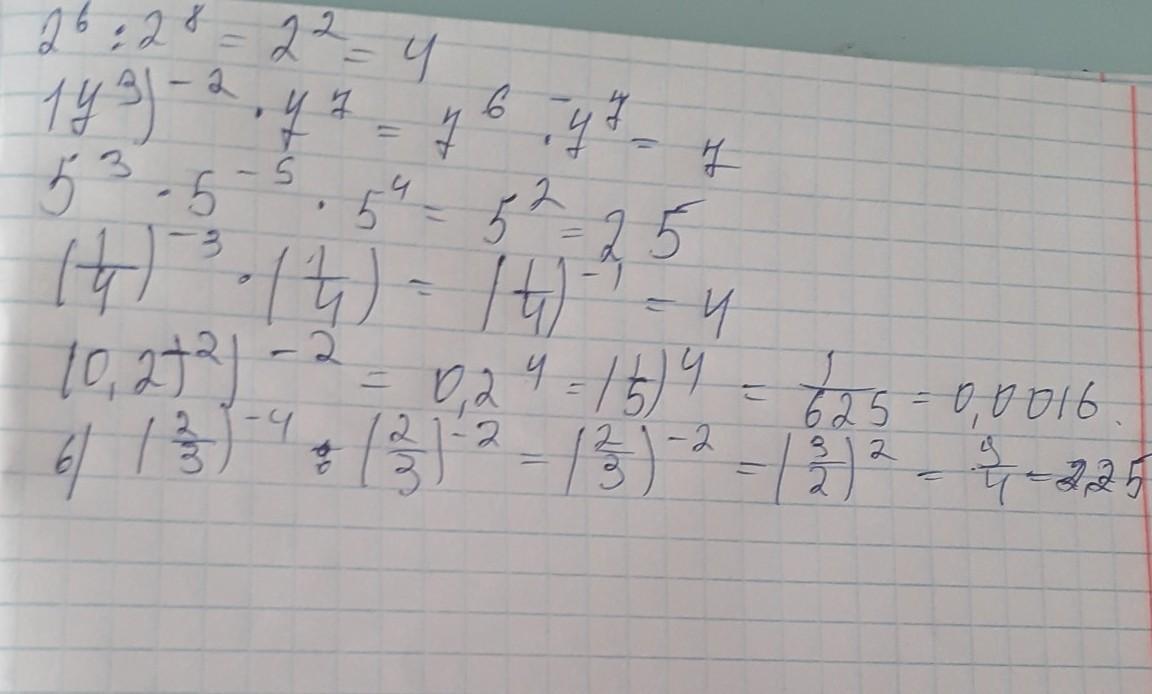 2⁶ : 2⁸ = 2² = 4
(y³)⁻² · y⁷ = y⁶ · y⁷ = y
5³ · 5⁻⁵ · 5⁴ = 5² = 25
(1/4)⁻³ · (1/4) = (1/4)⁻¹ = 4
(0,2⁺²)⁻² = 0,2⁴ = (1/5)⁴ = 1/625 = 0,0016.
6) (2/3)⁻⁴ : (2/3)⁻² = (2/3)⁻² = (3/2)² = 9/4 = 2,25